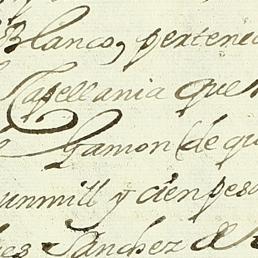 Blanco, pertenec
Capellania que
Gamon (de qu
unmill y cien pes
Sanchez de